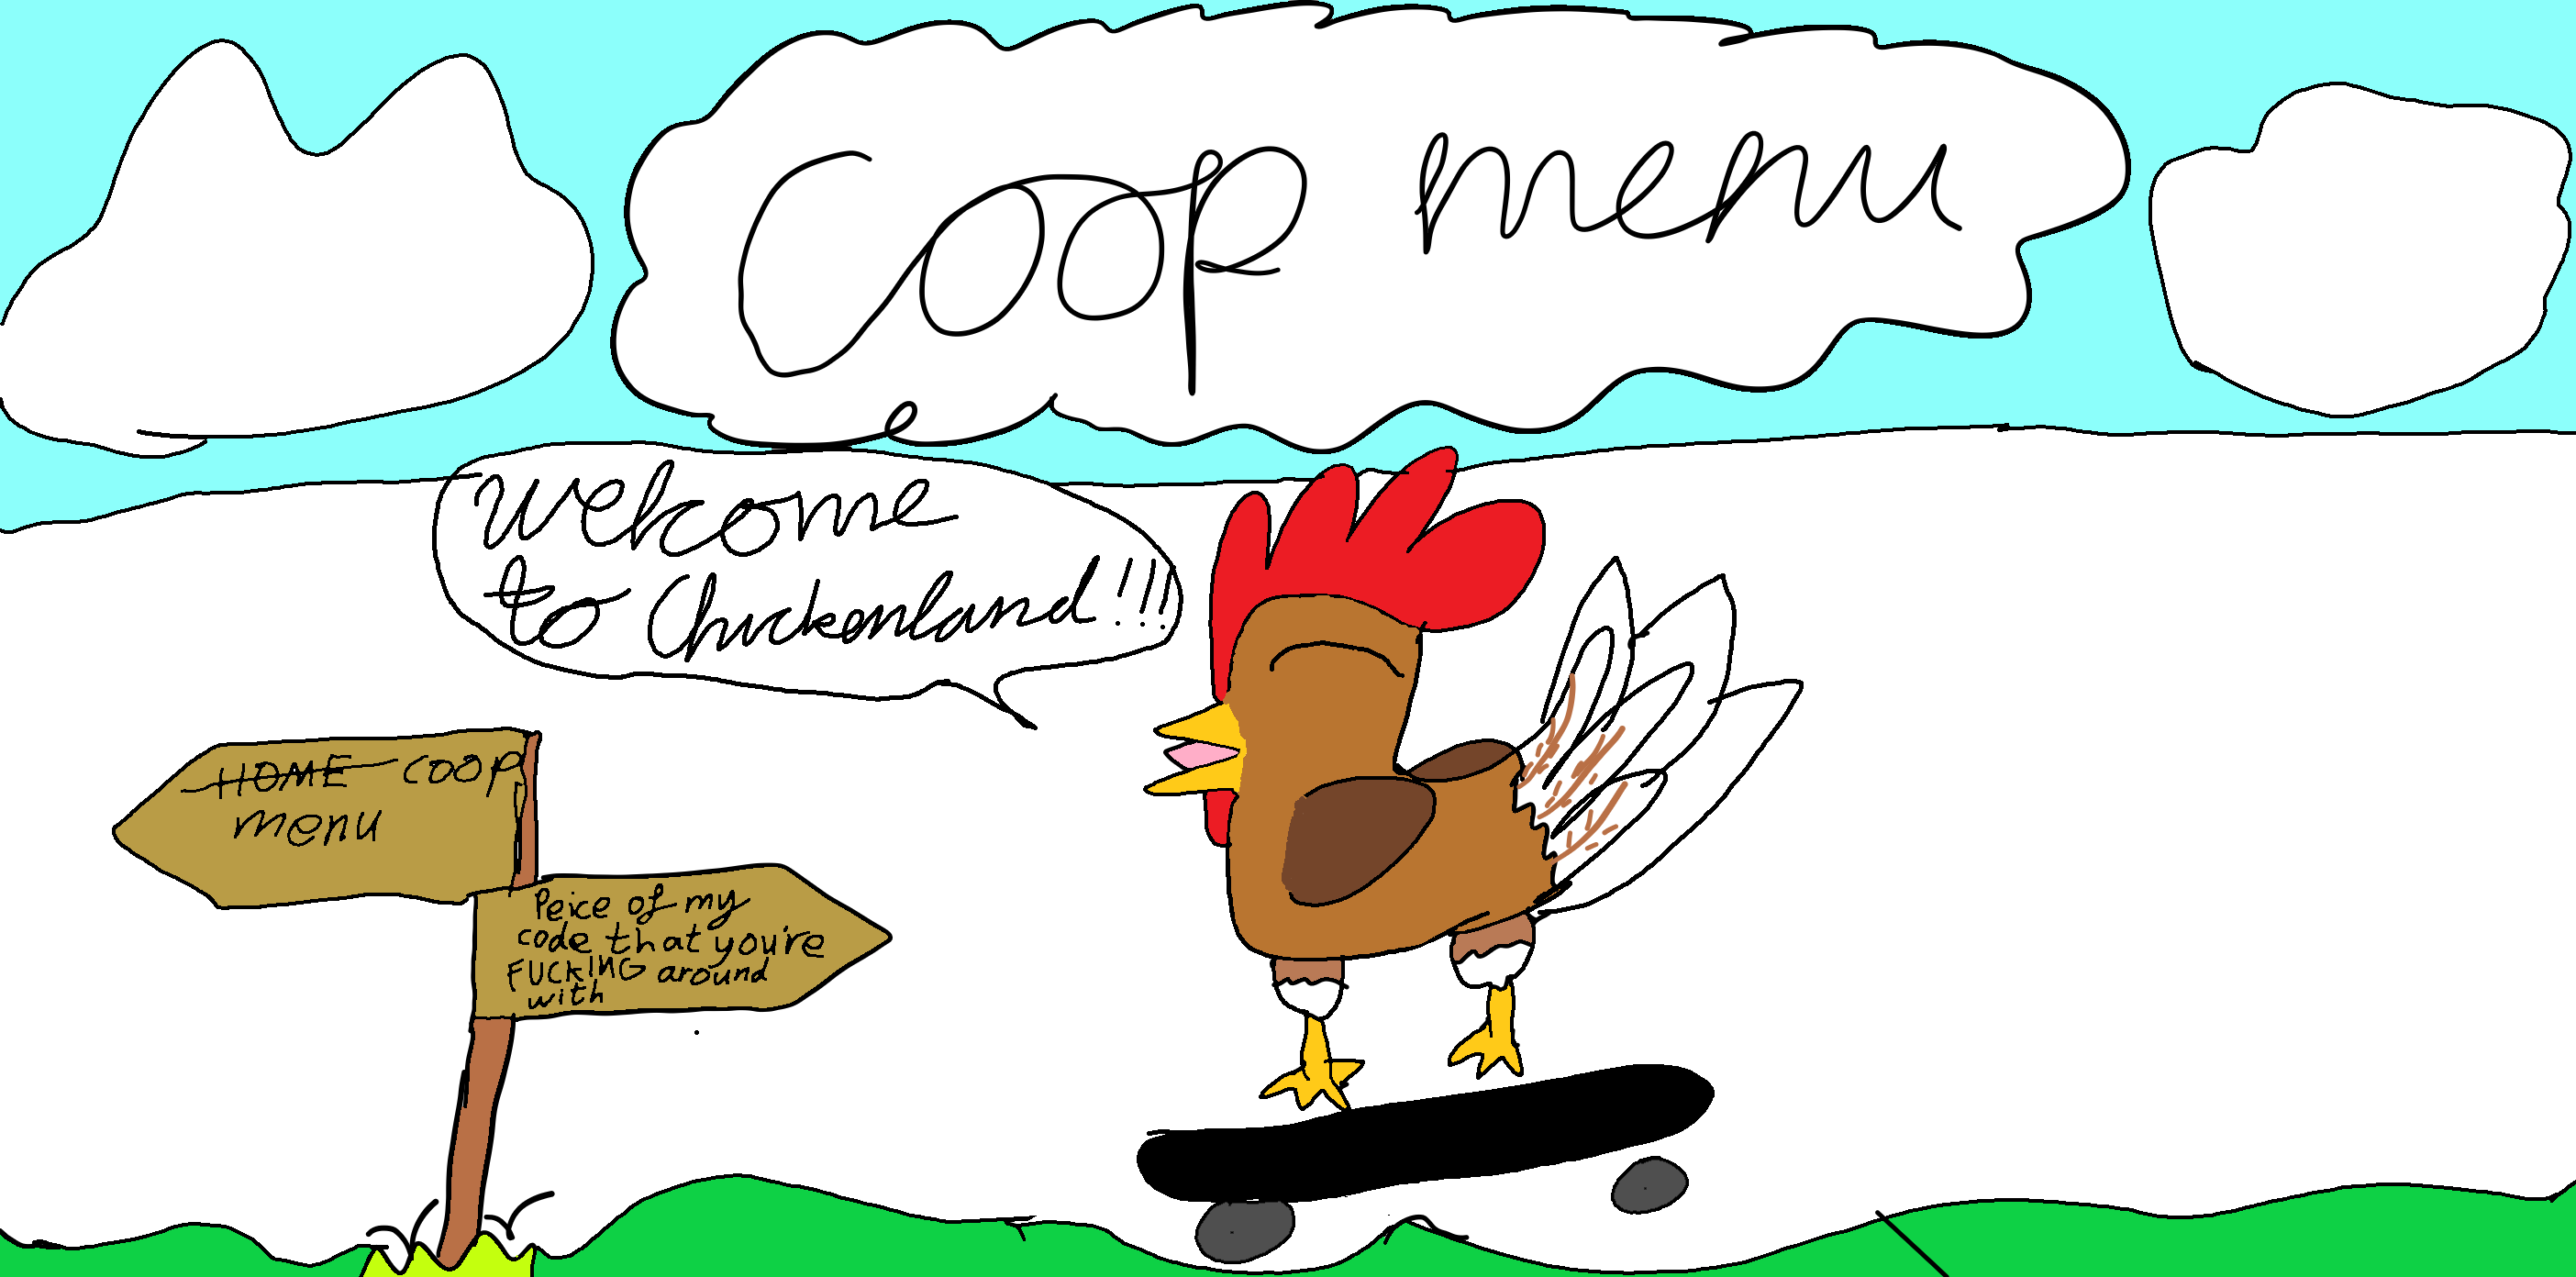 Coop menu
Welcome
to Chickenland!!!
HOME COOP
menu
Peice of my
code that you're
FUCKING around
with